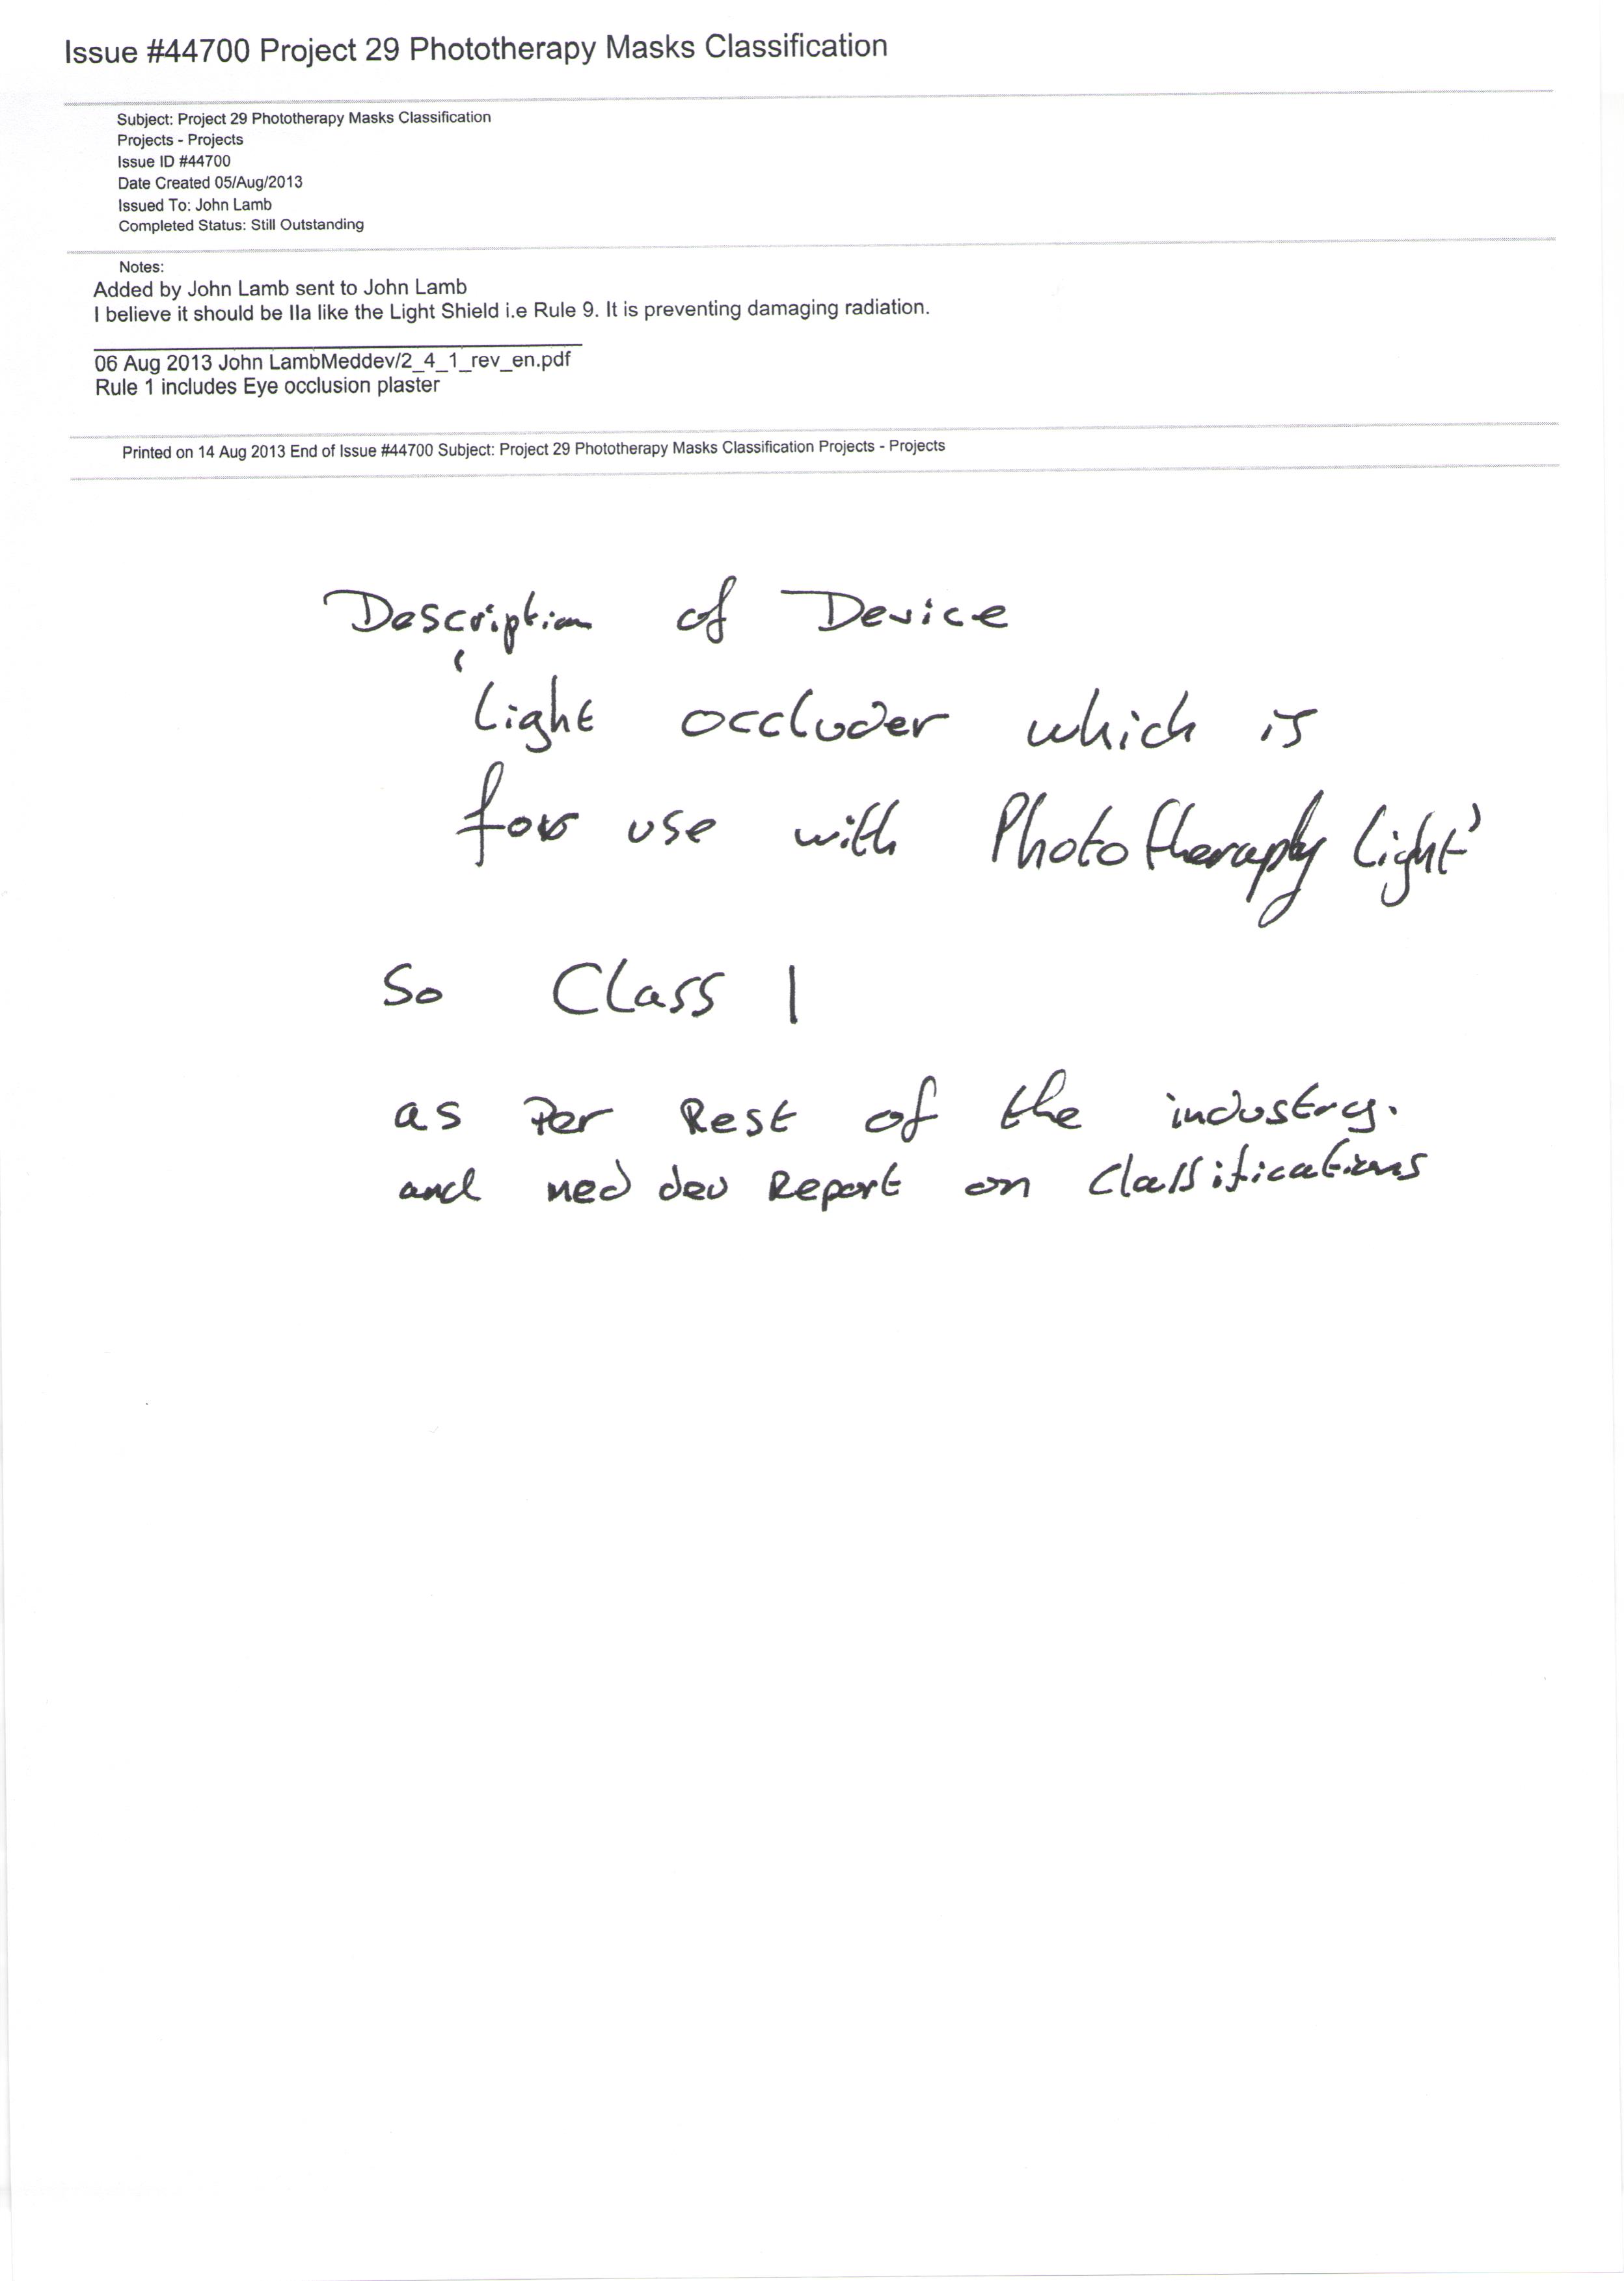 Issue #44700 Project 29 Phototherapy Masks Classification
Subject: Project 29 Phototherapy Masks Classification
Projects - Projects
Issue ID #44700
Date Created 05/Aug/2013
Issued To: John Lamb
Completed Status: Still Outstanding
Notes:
Added by John Lamb sent to John Lamb
I believe it should be IIa like the Light Shield i.e Rule 9. It is preventing damaging radiation.
06 Aug 2013 John LambMeddev/2_4_1_rev_en.pdf
Rule 1 includes Eye occlusion plaster
Printed on 14 Aug 2013 End of Issue #44700 Subject: Project 29 Phototherapy Masks Classification Projects - Projects
Description of Device
'Light occluder which is
for use with Phototheraphy light'
So Class 1
as Per Rest of the industry.
and med dev Report on Classifications